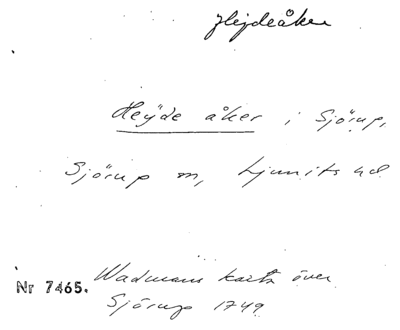 Hejdeåker
Heÿde åker i Sjörup,
Sjörup sn, Ljunits hd
Wadmans karta över
Nr 7465.
Sjörup 1749